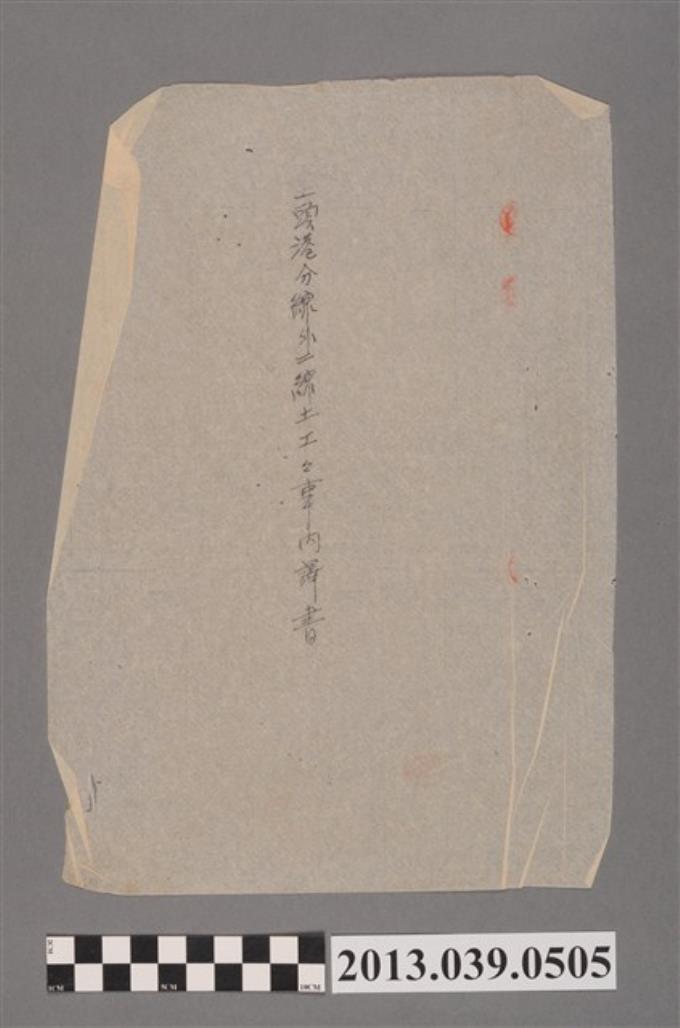 二頭港分線外二線土工々事內譯書
2013.039.0505
1CM
1CM
5CM
10CM